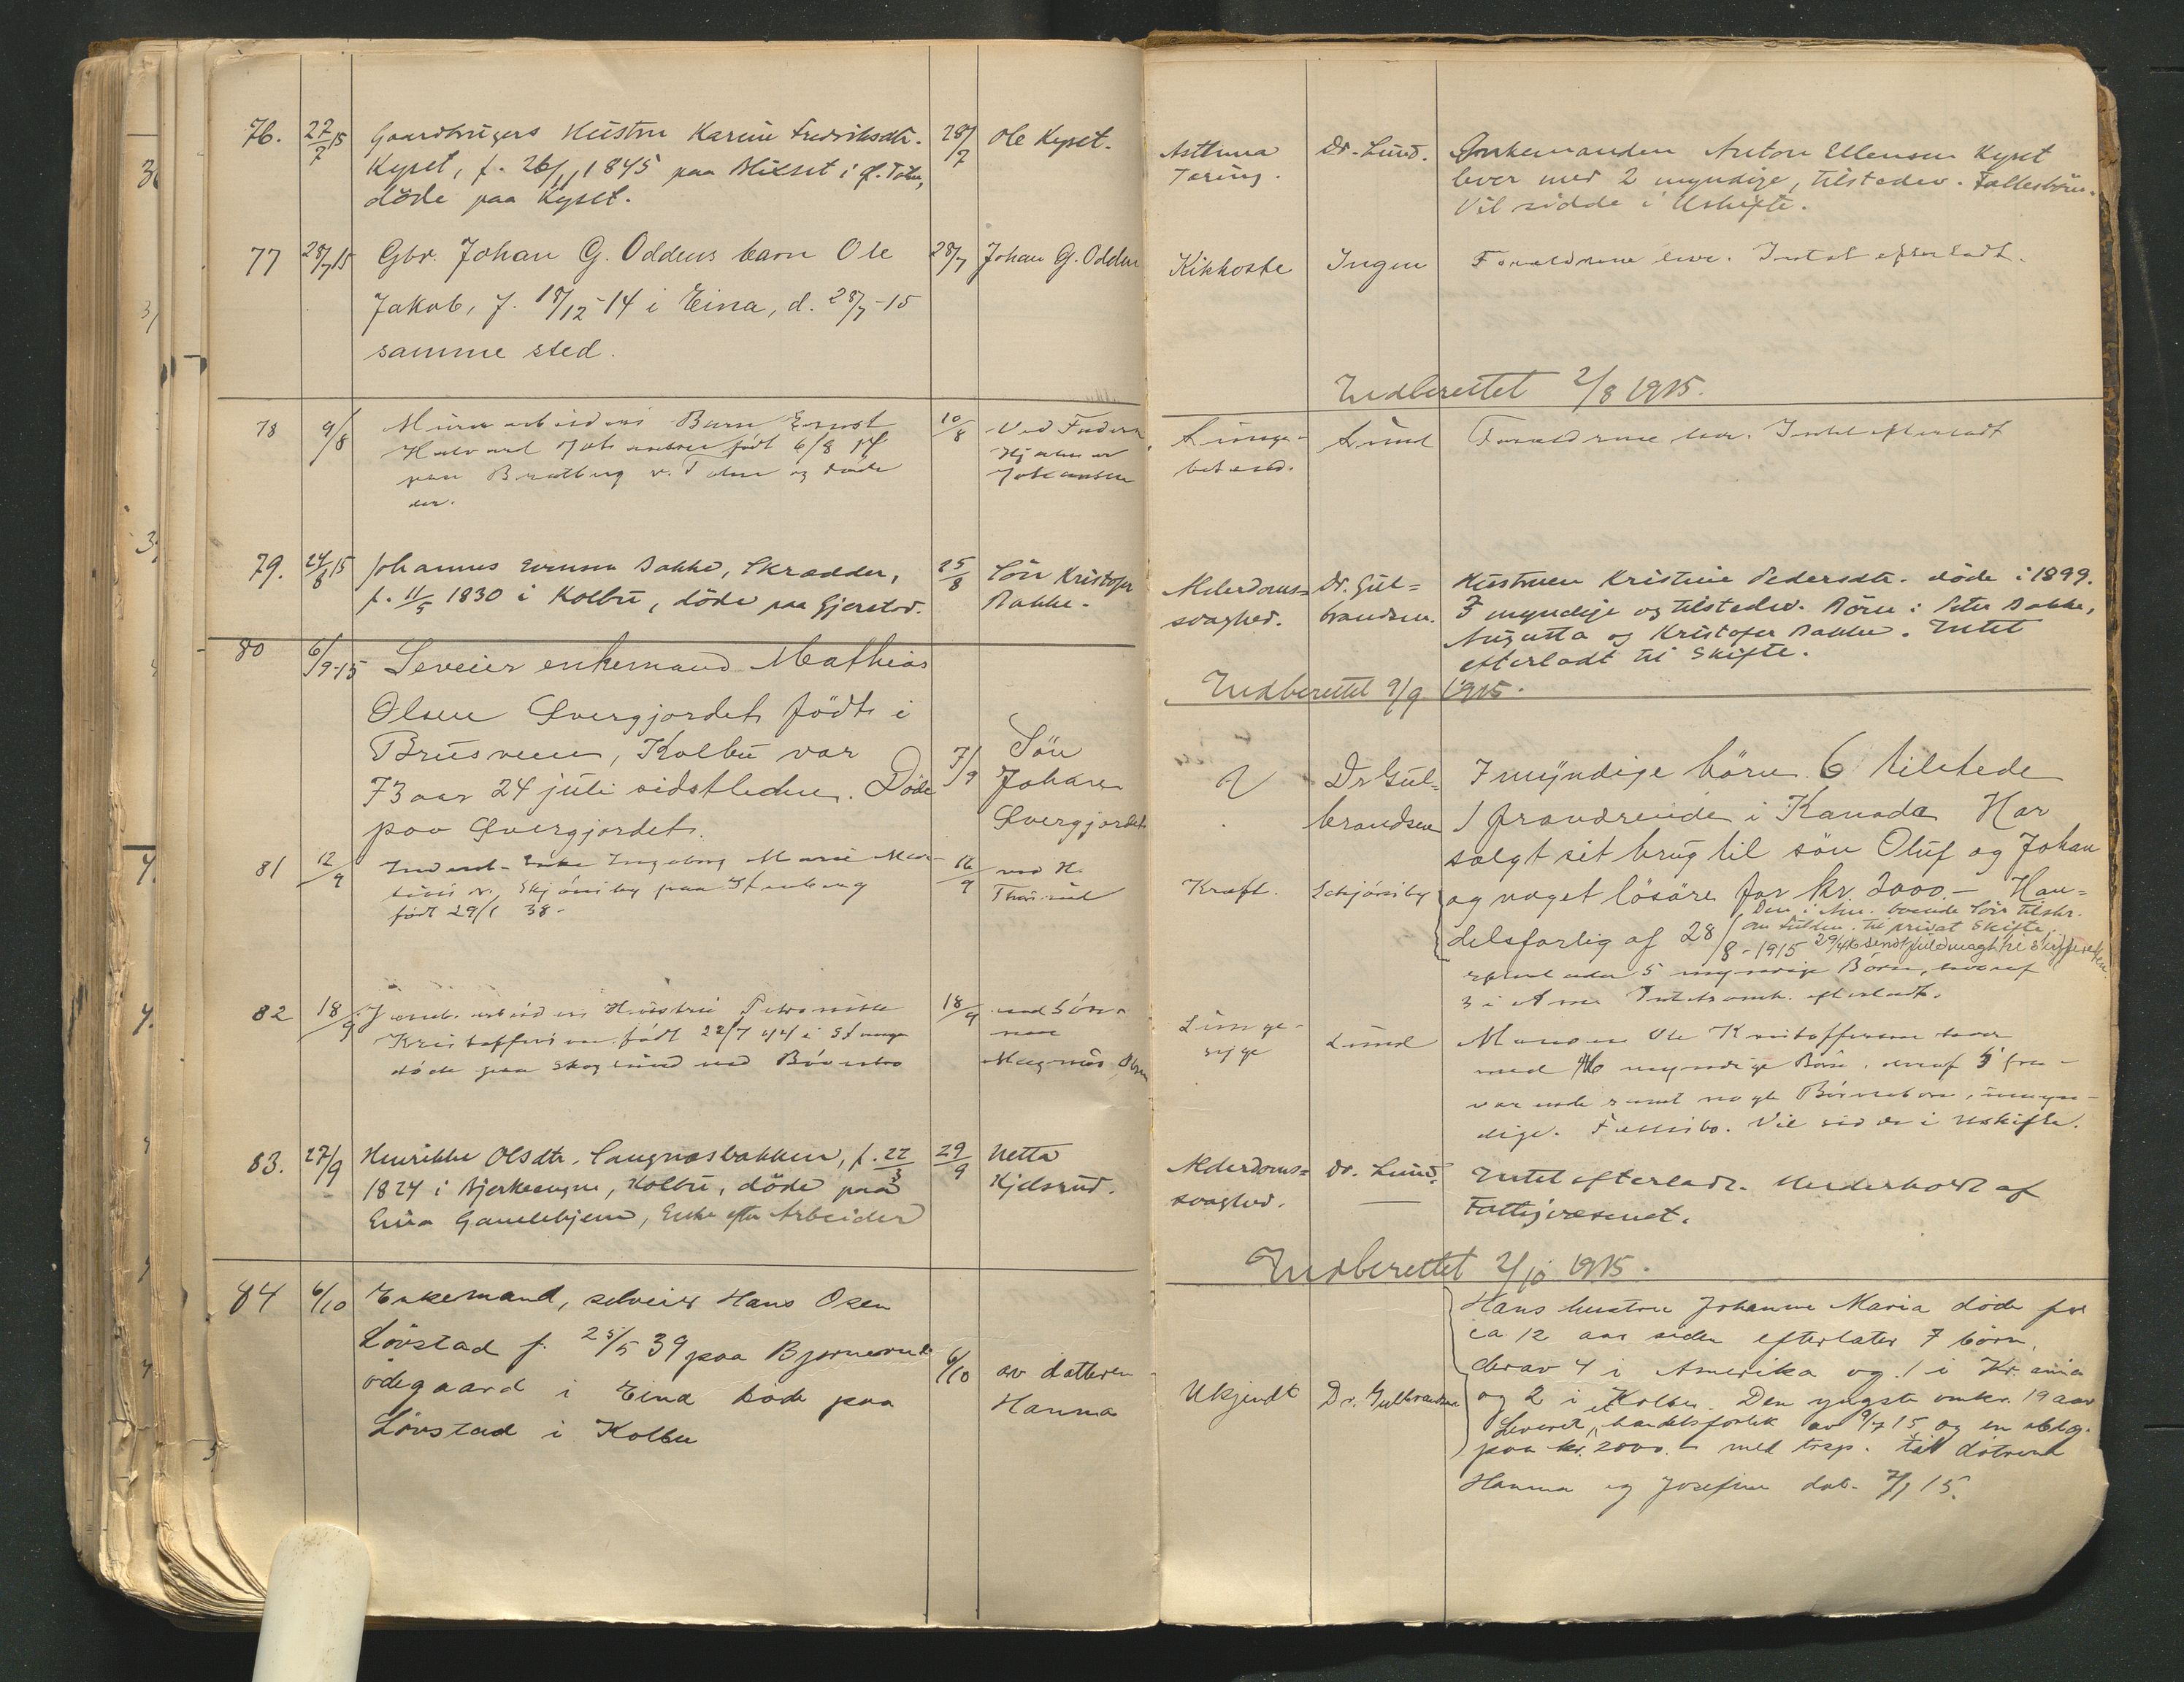 76. 27/7 15 Gaardbrugers Hustru Karine Fredriksdtr. 28/7 Ole Kyset.
Kyset, f. 26/11 1845 paa i Ø. Toten,
døde paa Kyset.
77 28/7 15 Gbr. Johan G. Oddens barn Ole 28/7 Johan G. Odden
Jakob, f. 18/12-14 i Eina, d. 28/7-15
samme sted.
78 9/8 Murarbeiders Barn Ernst 10/8 ved Faderen
Halvard Johansen født 6/8 14 Hjalmar
paa v. Toten og døde Johansen
der.
79. 24/8 15 Johannes Evensen Bakke, Skrædder, 25/8 Søn Kristofer
f. 11/5 1830 i Kolbu, døde paa Gjerstad. Bakke.
80 6/9-15 Seveier enkemand Mathias
Olsen Øvergjordet født i
Brusveen, Kolbu var 7/9 Søn
73 aar 24 juli sidstleden. Døde Johan
paa Øvergjordet. Øvergjordet
81 12/9 Inderst-Enke Ingeborg Marie 16/9 ved H.
Skjønsby paa Stenberg
født 29/1 38-
82 18/9 Jernb. arbeiders Hustru 18/9 ved Søn-
født 22/7 i nen
døde paa Skoglund ved Magnus Olsen
83. 27/9 Henrikke Olsdtr. Langnæsbakken, f. 22/3 29/9 Netta
1824 i Bjerkeengen, Kolbu, døde paa Kjelsrud.
Eina Gamlehjem, Enke efter Arbeider
84 6/10 Enkemand, selveier Hans Osen
Lövstad f. 25/5 39 paa Bjørnerud
ödegaard i Eina döde paa 6/10 av datteren
Lövstad i Kolbu Hanna
Asthma Dr. Lund. Enkemanden Anton Ellensen Kyset
Tæring. lever med 2 myndige, tilstedev. Fællesbørn.
Vil sidde i Uskifte.
Kikhoste Ingen Forældrene lever. Intet efterladt.
Indberettet 2/8 1915.
Lunge- Lund Forældrene lever. Intet efterladt
betænd.
Alderdoms= Dr. Gul= Hustruen Kristine Pedersdtr. døde i 1899.
svaghed. brandsen. 3 myndige og tilstedev. Børn: Peter Bakke,
Augusta og Kristofer Bakke. Intet
efterladt til Skifte.
Indberettet 9/9 1915.
Dr Gul= 7 myndige börn. 6 tilstede
brandsen 1 fraværende i Kanada Har
solgt sit brug til sön Oluf og Johan
Kræft. Schjønsby og noget lösöre for kr. 2000.- Han=
Den i Am. boende Søn tilskr.
om fuldm. til privat Skifte.
delsforlig af 28/8-1915 29/4 16 sendt fuldmagt til Skifteretten.
5 myndige Børn, hvoraf
3 i Am. efterladt.
Lunge- Lund Manden Ole Kristoffersen lever
syge med 6 myndige Børn, deraf 5 fra-
værende samt nogle Børnebørn, umyn-
dige. Fællesbo. Vil sidde i Uskifte.
Alderdoms= Dr. Lund. Intet efterladt. Underholdt af
svaghed. — Fattigvæsenet.
Indberettet 2/10 1915.
Hans hustru Johanne Maria döde for
ca 12 aar siden efterlater 7 börn,
derav 4 i Amerika og 1 i Kr.ania
Ukjendt Dr. Gulbrandsen og 2 i Kolbu. Den yngste omkr. 19 aar
Leveret et handelsforlik av 9/7 15 og en oblig.
paa kr. 2000.- med trsp. til dötrene
Hanna og Josefine dat. 7/1 15.